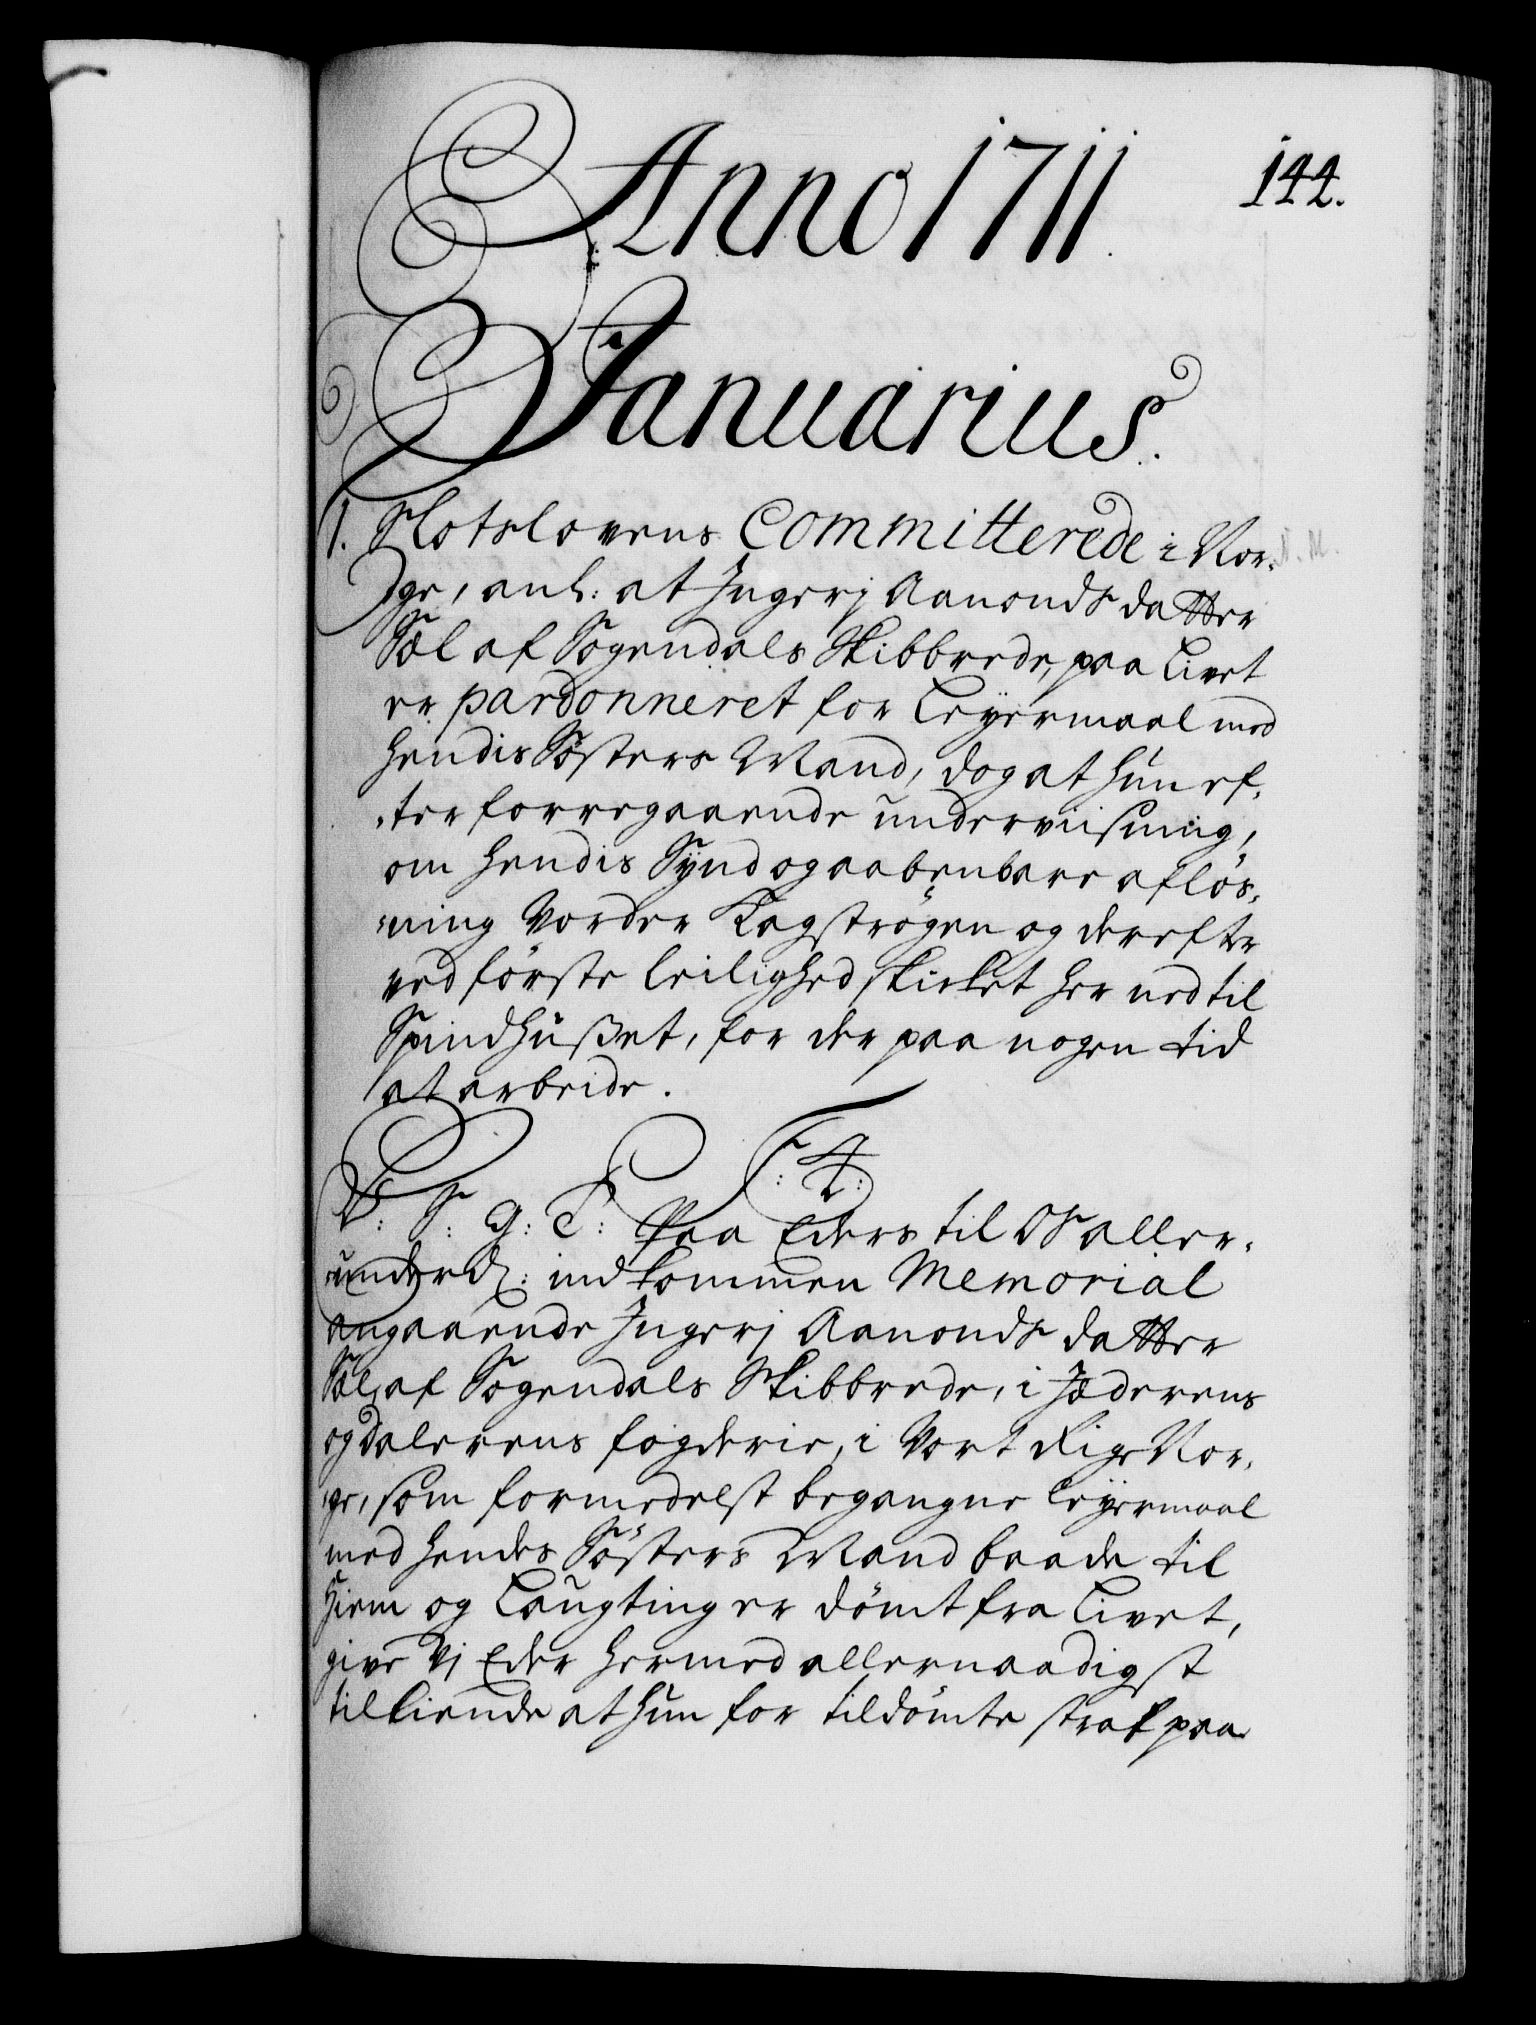 144.
Anno 1711.
Januarius.
1. Slotslovens Committerede i Nor-
ge, anl: at Ingerj Aanonds datter
Søl af Sogendals Skibbrede, paa Livet
er pardonneret for Leyermaal med
hendis Søsters Mand, dog at hun ef-
ter forregaaende underviisning,
om hendis Synd og aabenbare afløs-
ning vorder Kagstrøgen og derefter
ved første leilighed skicket her ned til
Spindhusset, for der paa nogen tid
at arbeide.
F: 4:
V: S: G: T: Paa Eders til Os aller-
underd: indkommen Memorial
angaaende Ingerj Aanonds datter
Søl, af Sogendals Skibbrede, i Jæderens
og Dalerens fogderie, i Vort Rige Nor-
ge, som formedelst begangne Leyermaal
med hendes Søsters Mand baade til
Hiem og Laugting er dømt fra Livet,
give Vj Eder hermed allernaadigst
tilkiende at hun for tildømte straf paa